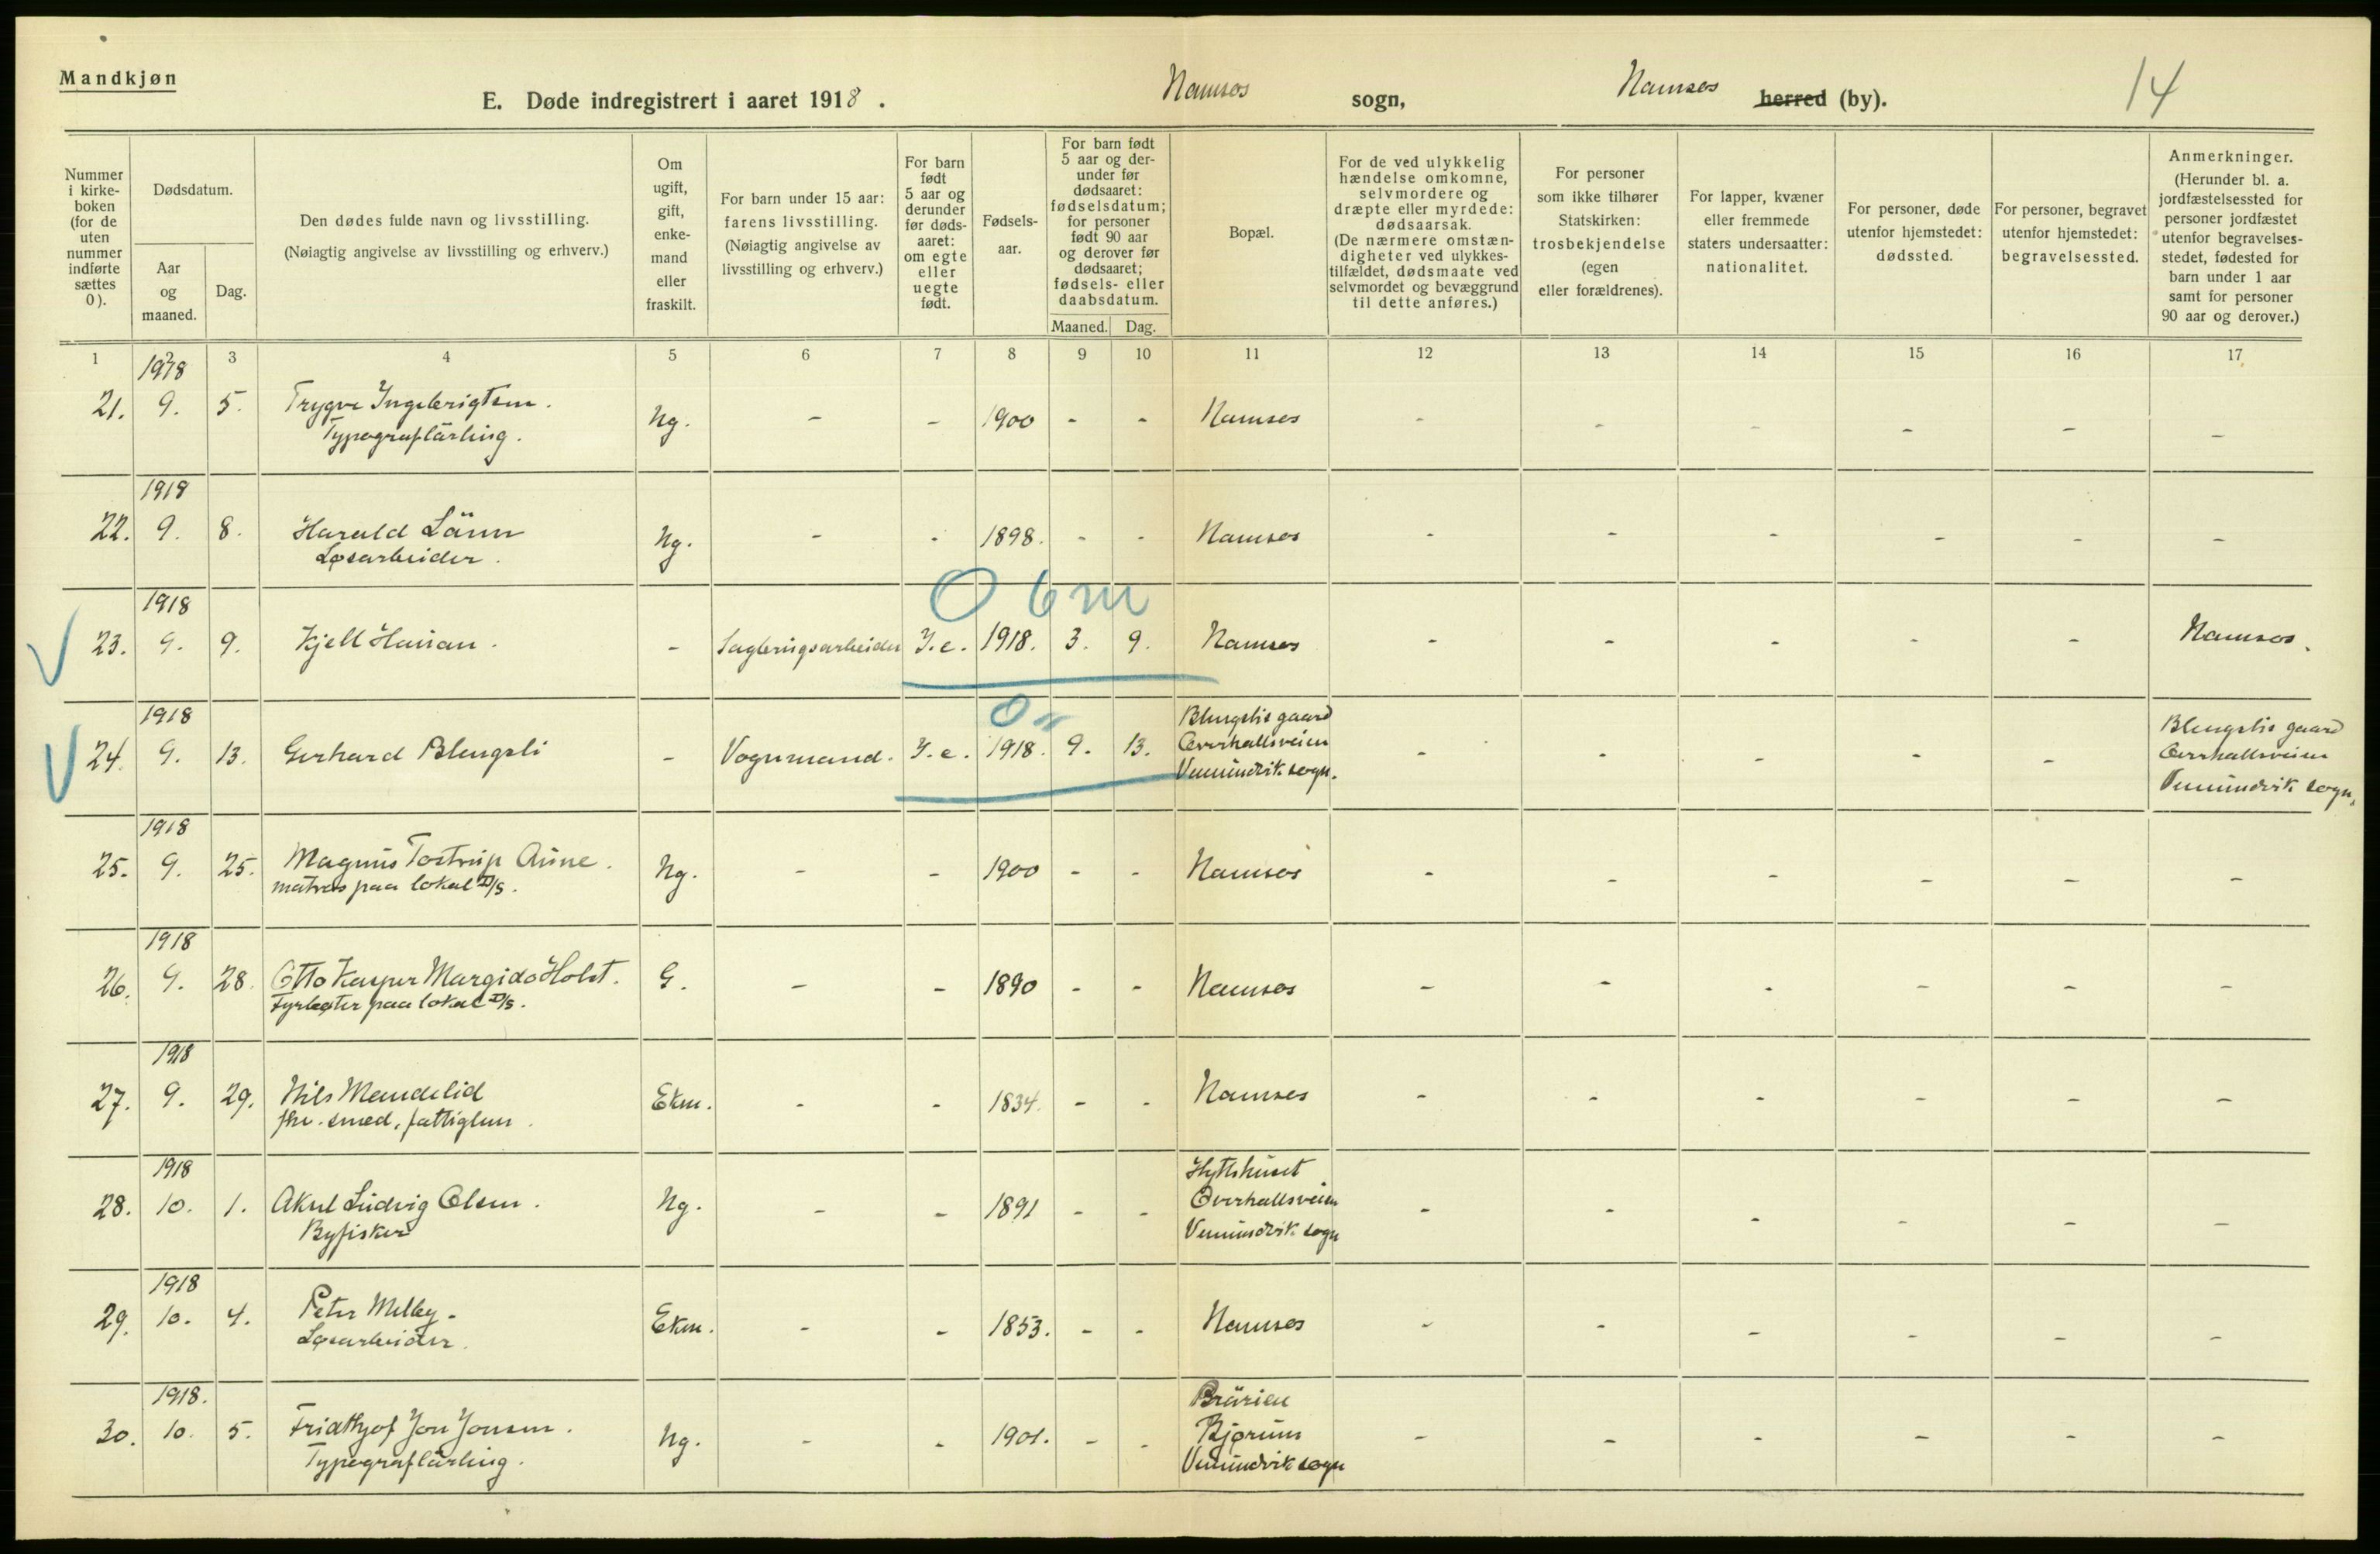 Mandkjøn
E. Døde indregistrert i aaret 1918.
Namsos sogn,
Namsos herred (by).
14
Nummer i kirke-boken (for de uten nummer indførte sættes 0).
Dødsdatum.
Aar og maaned.
Dag.
Den dødes fulde navn og livsstilling.
(Nøiagtig angivelse av livsstilling og erhverv.)
Om ugift, gift, enke-mand eller fraskilt.
For barn under 15 aar: farens livsstilling.
(Nøiagtig angivelse av livsstilling og erhverv.)
For barn født 5 aar og derunder før døds-aaret: om egte eller uegte født.
Fødsels-aar.
For barn født 5 aar og der-under før dødsaaret: fødselsdatum; for personer født 90 aar og derover før dødsaaret; fødsels- eller daabsdatum.
Maaned. Dag.
Bopæl.
For de ved ulykkelig hændelse omkomne, selvmordere og dræpte eller myrdede: dødsaarsak.
(De nærmere omstæn-digheter ved ulykkes-tilfældet, dødsmaate ved selvmordet og bevæggrund til dette anføres.)
For personer som ikke tilhører Statskirken: trosbekjendelse (egen eller forældrenes).
For lapper, kvæner eller fremmede staters undersaatter: nationalitet.
For personer, døde utenfor hjemstedet: dødssted.
For personer, begravet utenfor hjemstedet: begravelsessted.
Anmerkninger.
(Herunder bl. a. jordfæstelsessted for personer jordfæstet utenfor begravelses-stedet, fødested for barn under 1 aar samt for personer 90 aar og derover.)
1 2 3 4 5 6 7 8 9 10 11 12 13 14 15 16 17
1918
21. 9. 5. Trygve Ingebrigtsen. Ug. - - 1900 - - Namsos - - - - - -
Typograflärling.
1918
22. 9. 8. Harald Länn Ug. - - 1898. - - Namsos - - - - - -
Løsarbeider.
O 6 m
1918
23. 9. 9. Kjell Hanan. - Sagbrugsarbeider I.e. 1918. 3. 9. Namsos - - - - - Namsos.
0 "
1918
24. 9. 13. Gerhard Blengsli - Vognmand. I.e. 1918. 9. 13. Blengslis gaard - - - - - Blengslis gaard
Overhallsveien Overhallsveien
Vemundvik sogn. Vemundvik sogn.
1918
25. 9. 25. Magnus Tostrup Aune. Ug. - - 1900 - - Namsos - - - - - -
matros paa lokal D/S.
1918
26. 9. 28. Otto Kasper Margido Holst. G. - - 1890 - - Namsos - - - - - -
Fyrbøter paa lokal D/S.
1918
27. 9. 29. Nils Mandelid Ekm. - - 1834. - - Namsos - - - - - -
fhv. smed, fattiglem.
1918
28. 10. 1. Aksel Ludvig Olsen. Ug. - - 1891 - - - - - - - -
Byfisker Overhallsveien
Vemundvik sogn
1918
29. 10. 4. Peter Melby. Ekm. - - 1853. - - Namsos - - - - - -
Løsarbeider.
1918.
30. 10. 5. Fridthjof Jon Jonsen. Ug. - - 1901. - - Brärien - - - - - -
Typograflärling. Bjørum
Vemundvik sogn